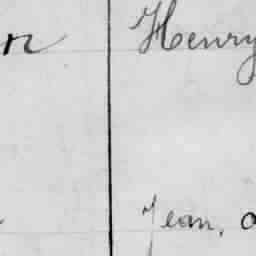 n Henry
Jean,